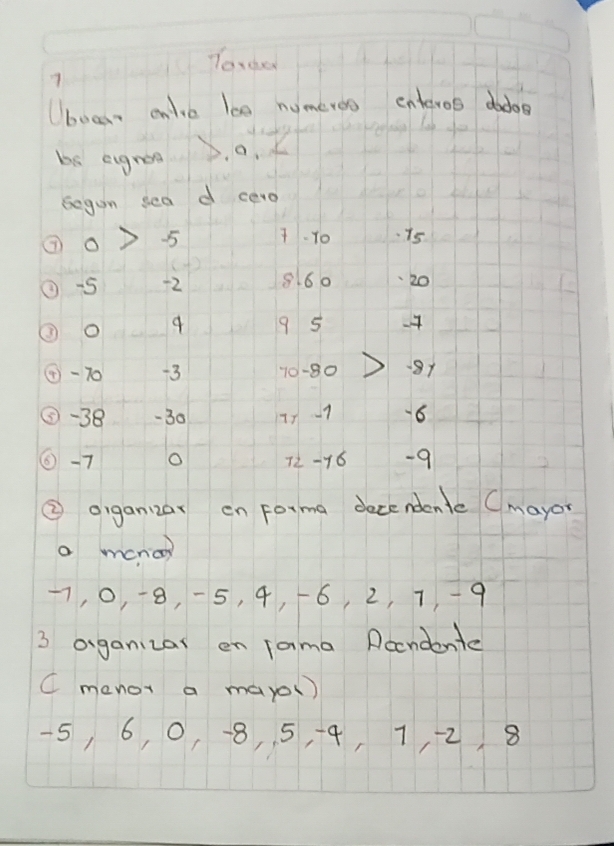 1 Tarea
Ubicar entre los numeros enteros dados
los signos >, o, <
segun sea el caso
① 0 > -5 7 -10 -15
-5 -2 8 -60 -20
③ 0 4 9 5 -7
④ -10 -3 10 -80 > -81
⑤ -38 -30 11 -1 -6
⑥ -7 0 12 -16 -9
② organizar en forma decendente (mayor
a menor)
-1, 0, -8, -5, 4, -6, 2, 7, -9
3 organizar en forma Acendente
( menor a mayor)
-5, 6, 0, -8, 5, -4, 1, -2, 8